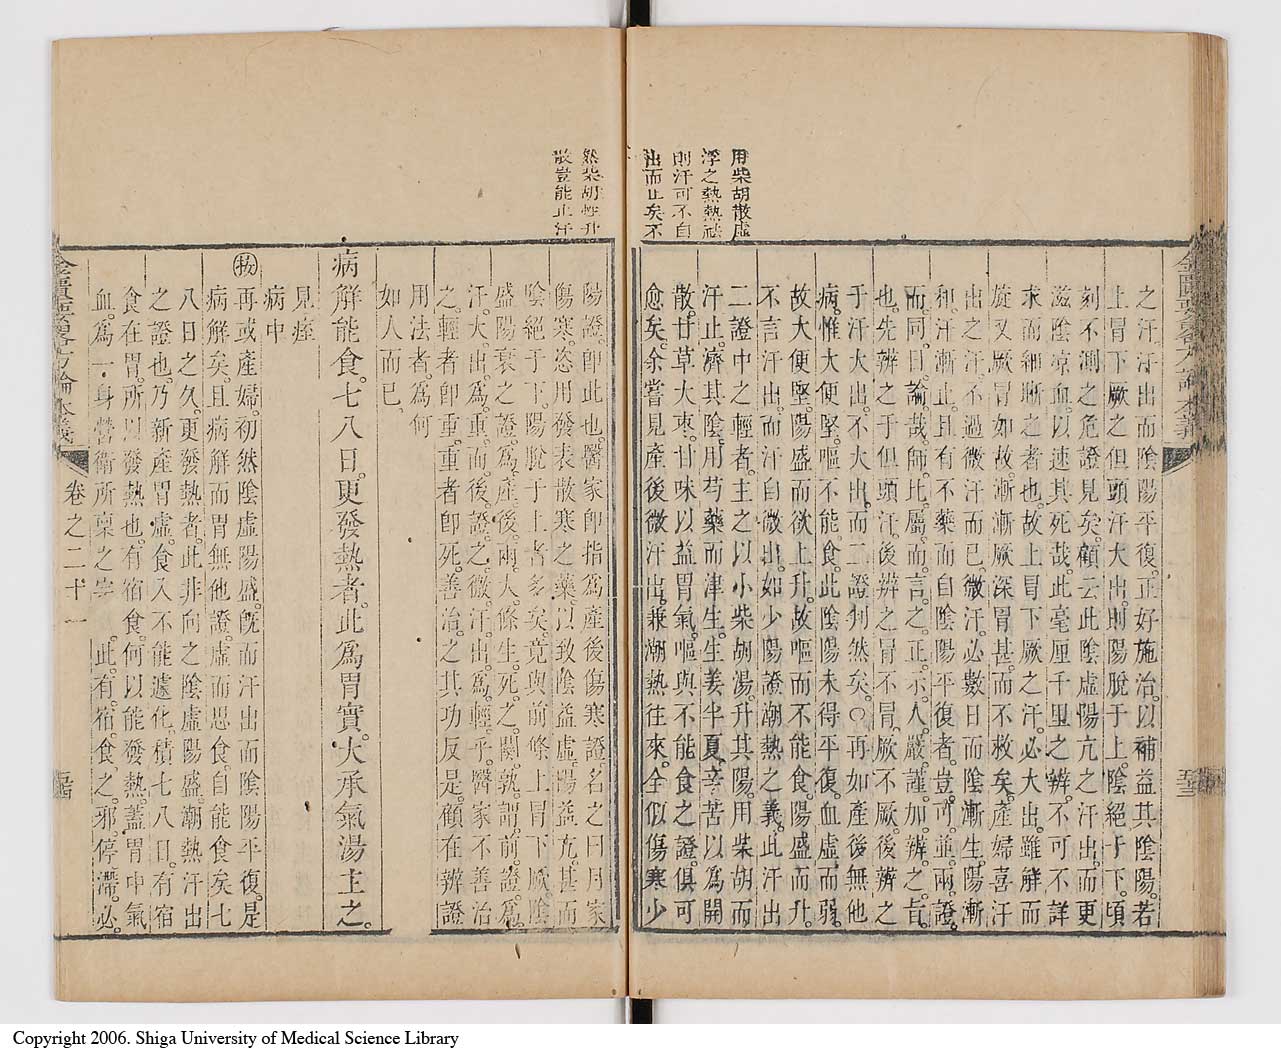 用柴胡散虛
浮之熱熱祛
則汗可不自
出而止矣不
之汗汗出而陰陽平復正好施治以補益其陰陽若
上冒下厥之但頭汗大出則陽脫于上陰絕于下頃
刻不測之危證見矣顧云此陰虛陽亢之汗出而更
滋陰凉血以速其死哉此毫厘千里之辨不可不詳
求而細晰之者也故上冒下厥之汗必大出雖解而
旋又厥冒如故漸漸厥深冒甚而不救矣產婦喜汗
出之汗不過微汗而已微汗必數日而陰漸生陽漸
和汗漸止且有不藥而自陰陽平復者豈可並兩證
而同日論哉師比屬而言之正示人嚴謹加辨之旨
也先辨之于但頭汗後辨之冒不冒厥不厥後辨之
于汗大出不大出而二證判然矣○再如產後無他
病惟大便堅嘔不能食此陰陽未得平復血虛而弱
故大便堅陽盛而欲上升故嘔而不能食陽盛而升
不言汗出而汗自微出如少陽證潮熱之義此汗出
二證中之輕者主之以小柴胡湯升其陽用柴胡而
汗止濟其陰用芍藥而津生生姜半夏辛苦以為開
散甘草大枣甘味以益胃氣嘔與不能食之證俱可
愈矣余嘗見產後微汗出兼潮熱往來全似傷寒少
然柴胡性升
散豈能止汗
陽證卽此也醫家卽指為產後傷寒證名之曰月家
傷寒恣用發表散寒之藥以致陰益虛陽益亢甚而
陰絕于下陽脫于上者多矣竟與前條上冒下厥陰
盛陽衰之證為產後兩大條生死之關孰謂前證為
汗大出為重而後證之微汗出為輕乎醫家不善治
之輕者卽重重者卽死善治之其功反是顧在辨證
用法者為何
如人而已
病解能食七八日更發熱者此為胃實大承氣湯主之
見痓
病中
㊞再或產婦初然陰虛陽盛旣而汗出而陰陽平復是
病解矣且病解而胃無他證虛而思食自能食矣七
八日之久更發熱者此非向之陰虛陽盛潮熱汗出
之證也乃新產胃虛食入不能遽化積七八日有宿
食在胃所以發熱也有宿食何以能發熱蓋胃中氣
血為一身營衛所稟之宗此有宿食之邪停滯必
金匱要畧方論本義
卷之二十一
Copyright 2006. Shiga University of Medical Science Library